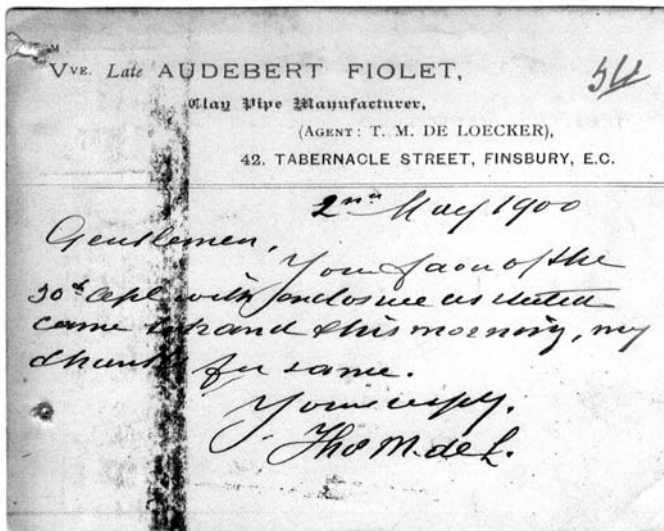 Vve. Late AUDEBERT FIOLET,
Clay Pipe Manufacturer,
(AGENT: T. M. DE LOECKER),
42. TABERNACLE STREET, FINSBURY, E.C.
2nd May 1900
Gentlemen,
Your favor of the
30th Apl with enclosure as stated
came to hand this morning, my
thanks for same.
Yours resply.
Thos M. de L.